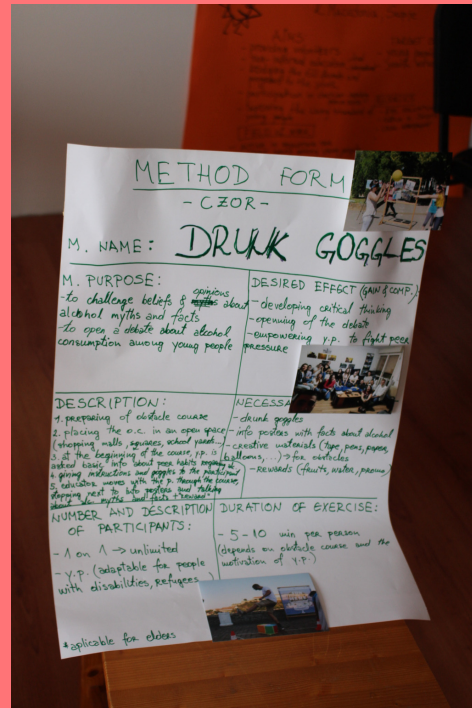 METHOD FORM
- CZOR -
M. NAME: DRUNK GOGGLES
M. PURPOSE:
- to challenge beliefs & opinions about
alcohol myths and facts
- to open a debate about alcohol
consumption among young people
DESIRED EFFECT (GAIN & COMP.)
- developing critical thinking
- openning of the debate
- empowering y.p. to fight peer
pressure
DESCRIPTION:
1. preparing of obstacle course
2. placing the o.c. in an open space
(shopping malls, squares, school yards...)
3. at the beginning of the course, y.p. is
asked basic info about peer habits
4. giving instructions and goggles to the participant
5. educator moves with the p. through the course,
stopping next to info posters and talking
about alc. myths and facts + reward
NECESSA
- drunk goggles
- info posters with facts about alcohol
- creative materials (tape, pens, papers,
balloons,...) → for obstacles
- rewards (fruits, water, promo)
NUMBER AND DESCRIPTION
OF PARTICIPANTS:
- 1 on 1 → unlimited
- y.p. (adaptable for people
with disabilities, refugees...)
*aplicable for elders
DURATION OF EXERCISE:
- 5-10 min per person
(depends on obstacle course and the
motivation of y.p.)